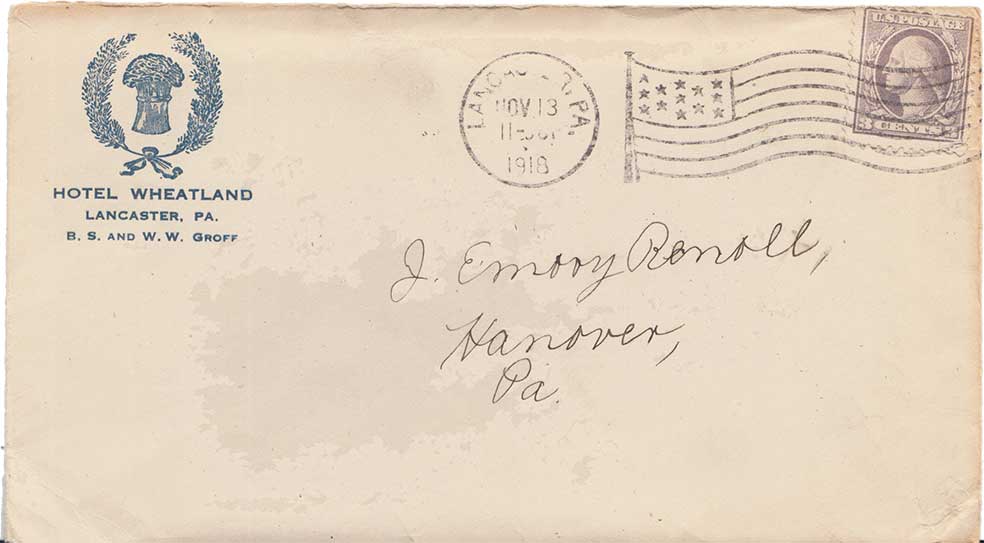 HOTEL WHEATLAND
LANCASTER, PA.
B. S. AND W. W. GROFF
LANCASTER, PA.
NOV 13
1918
U.S. POSTAGE
3 CENTS 3
J. Emory Renoll,
Hanover,
Pa.